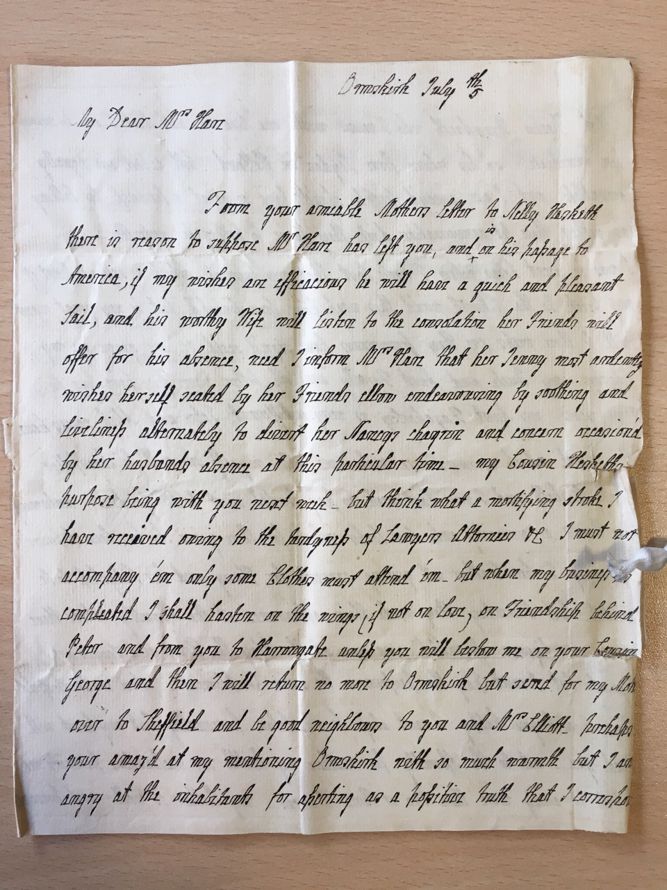 Ormskirk July 5th
My Dear Mrs Hare
From your amiable Mothers letter to Nelly Hesketh
there is reason to suppose Mr Hare has left you, and is on his paſsage to
America, if my wishes are efficacious he will have a quick and pleasant
Sail, and his worthy Wife will listen to the consolation her Friends will
offer for his absence, need I inform Mrs Hare that her Jenny most ardently
wishes herself seated by her Friends elbow endeavouring by soothing and
livelineſs alternately to divert her Nancys chagrin and concern occasion'd
by her husbands absence at this particular time – my Cousin Heskeths
purpose being with you next week – but think what a mortifying stroke I
have received owing to the tardyneſs of Lawyers Attornies &c I must not
accompany 'em only some Clothes must attend 'em – but when my busineſs is
compleated I shall hasten on the wings (if not on love) on Friendship behind
Peter and from you to Harrongate unleſs you will bestow me on your Cousin
George and then I will return no more to Ormskirk but send for my Mot
over to Sheffield and be good neighbours to you and Mrs Elliott – perhaps
your amaz'd at my mentioning Ormskirk with so much warmth but I am
angry at the inhabitants for aſserting as a poſitive truth that I correspon